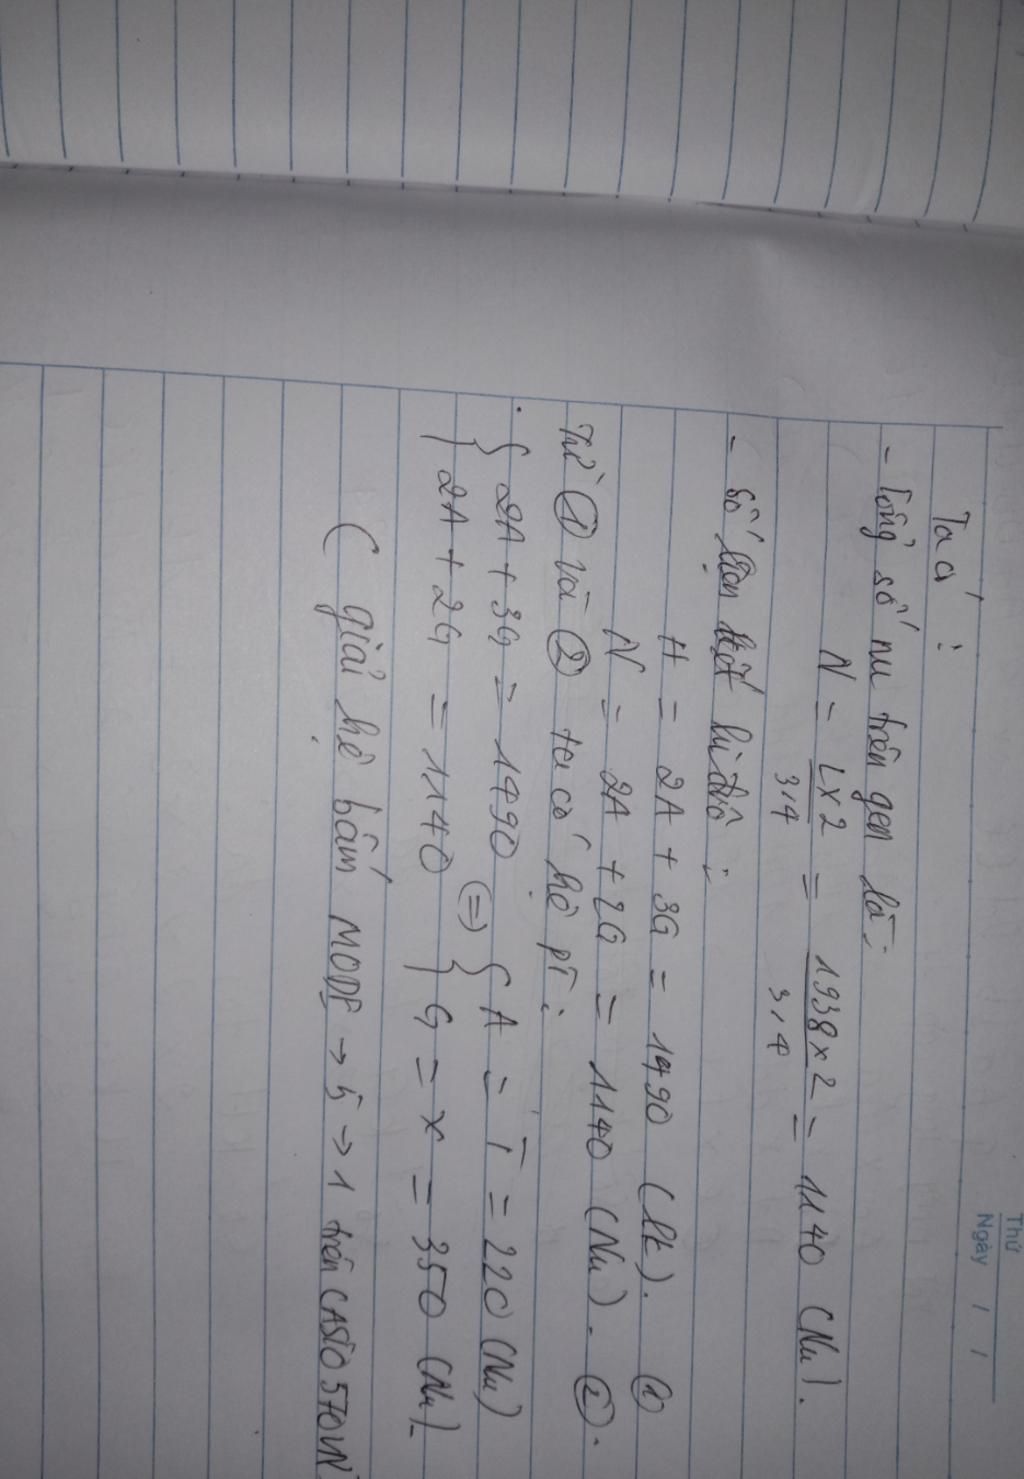 Thứ
Ngày / /
Ta có :
- Tổng số nu trên gen là :
N = L x 2 / 3,4 = 1938 x 2 / 3,4 = 1140 (Nu).
- Số liên kết hiđrô :
H = 2A + 3G = 1490 (lk). (1)
N = 2A + 2G = 1140 (Nu). (2).
Từ (1) và (2) ta có hệ pT :
{ 2A + 3G = 1490 <=> { A = T = 220 (Nu)
{ 2A + 2G = 1140 { G = X = 350 (Nu).
( giải hệ bấm MODE → 5 → 1 trên CASIO 570VN